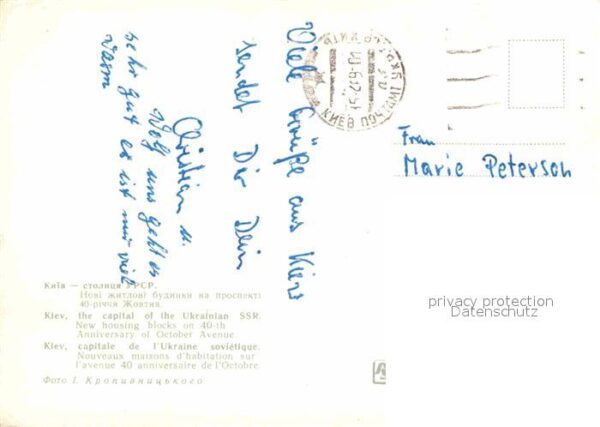 Viele Grüße aus Kiew
sendet Dir Dein
Christian u.
Wolf uns geht es
sehr gut es ist nur viel
warm
КИЕВ ПОЧТАМТ
Frau
Marie Peterson
privacy protection
Datenschutz
Київ — столиця УРСР.
Нові житлові будинки на проспекті
40-річчя Жовтня.
Kiev, the capital of the Ukrainian SSR.
New housing blocks on 40-th
Anniversary of October Avenue
Kiev, capitale de l'Ukraine soviétique.
Nouveaux maisons d'habitation sur
l'avenue 40 anniversaire de l'Octobre
Фото І. Кропивницького